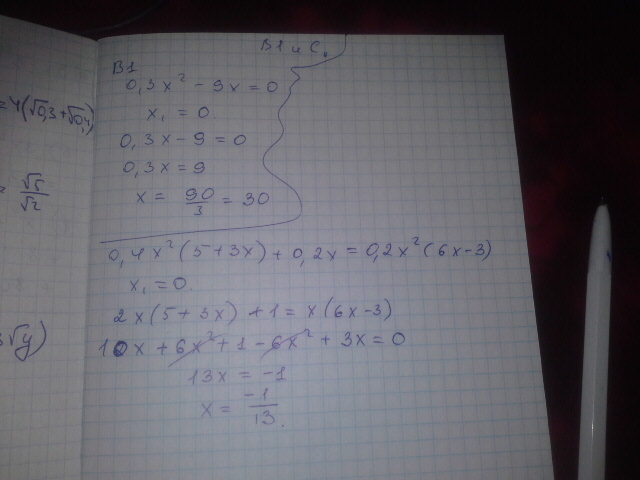 B1 и C.
B1
0,3x² - 9x = 0
x₁ = 0.
0,3x - 9 = 0
0,3x = 9
x = 90/3 = 30
0,4x²(5+3x) + 0,2x = 0,2x²(6x-3)
x₁ = 0.
2x(5+3x) + 1 = x(6x-3)
10x + 6x² + 1 - 6x² + 3x = 0
13x = -1
x = -1/13.
=4(√0,3+√0,4)
= √5/√2
√y)